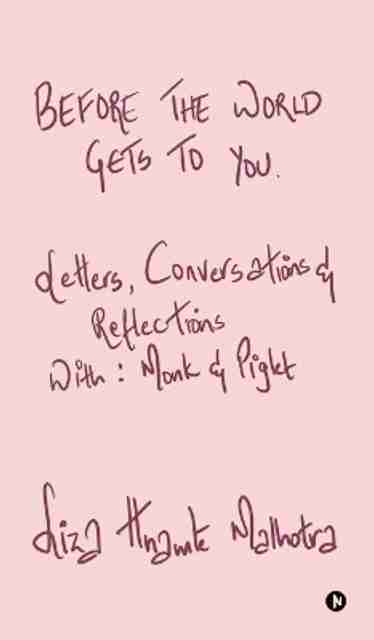 BEFORE THE WORLD
GETS TO YOU.
Letters, Conversations &
Reflections
With: Monk & Piglet
Liza Hnamte Malhotra
N